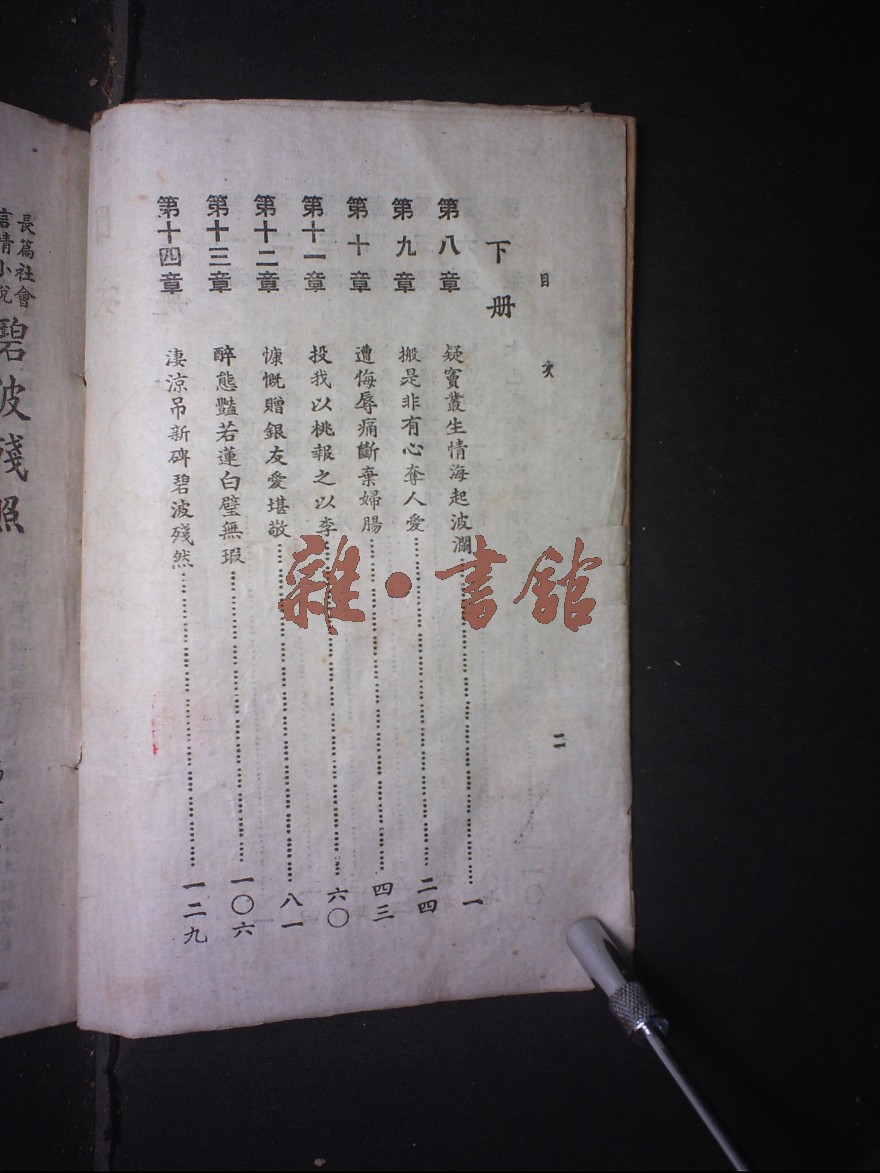 目次
二
下册
第八章 疑竇叢生情海起波瀾……一
第九章 搬是非有心奪人愛……二四
第十章 遭侮辱痛斷棄婦腸……四三
第十一章 投我以桃報之以李……六〇
第十二章 慷慨贈銀友愛堪敬……八一
第十三章 醉態豔若蓮白璧無瑕……一〇六
第十四章 淒涼吊新碑碧波殘然……一二九
長篇社會
言情小說
碧波殘照
雜·書館